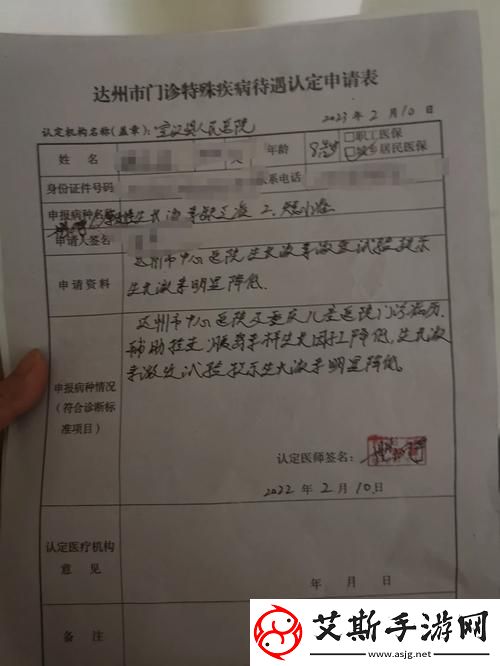 达州市门诊特殊疾病待遇认定申请表
认定机构名称(盖章): 宣汉县人民医院 2023年2月10日
姓名 年龄 8岁 □职工医保
□城乡居民医保
身份证件号码 联系电话
申报病种名称 生长激素缺乏症 2.矮小症
申请人签名
申请资料 达州市中心医院生长激素激发试验提示
生长激素明显降低.
达州市中心医院及重庆儿童医院门诊病历.
辅助检查:胰岛素样生长因子降低,生长激
素激发试验提示生长激素明显降低.
申报病种情况
(符合诊断标
准项目)
认定医师签名:
2022年2月10日
认定医疗机构
意见
年 月 日
备注
艾斯手游网
www.asjg.net